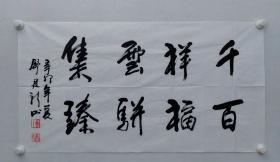 千祥雲集
百福駢臻
辛卯年夏